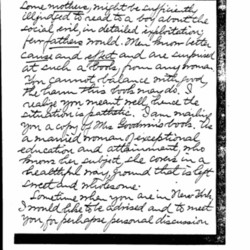 Some mothers, might be sufficiently
illjudged to read to a boy about the
social evil, in detailed exploitation,
few fathers would. Men know better
cause and effect and are surprised
at such a book, from any woman.
You cannot balance with good,
the harm this book may do. I
realize you meant well, hence the
situation is pathetic. I am mailing
you a copy of Mrs Goodwin's book. She
a married woman of exceptional
education and attainment, who
knows her subject, she covers in a
healthful way ground that is left
sweet and wholesome.
Sometime when you are in New York
I would like to be advised and to meet
you for perhaps personal discussion